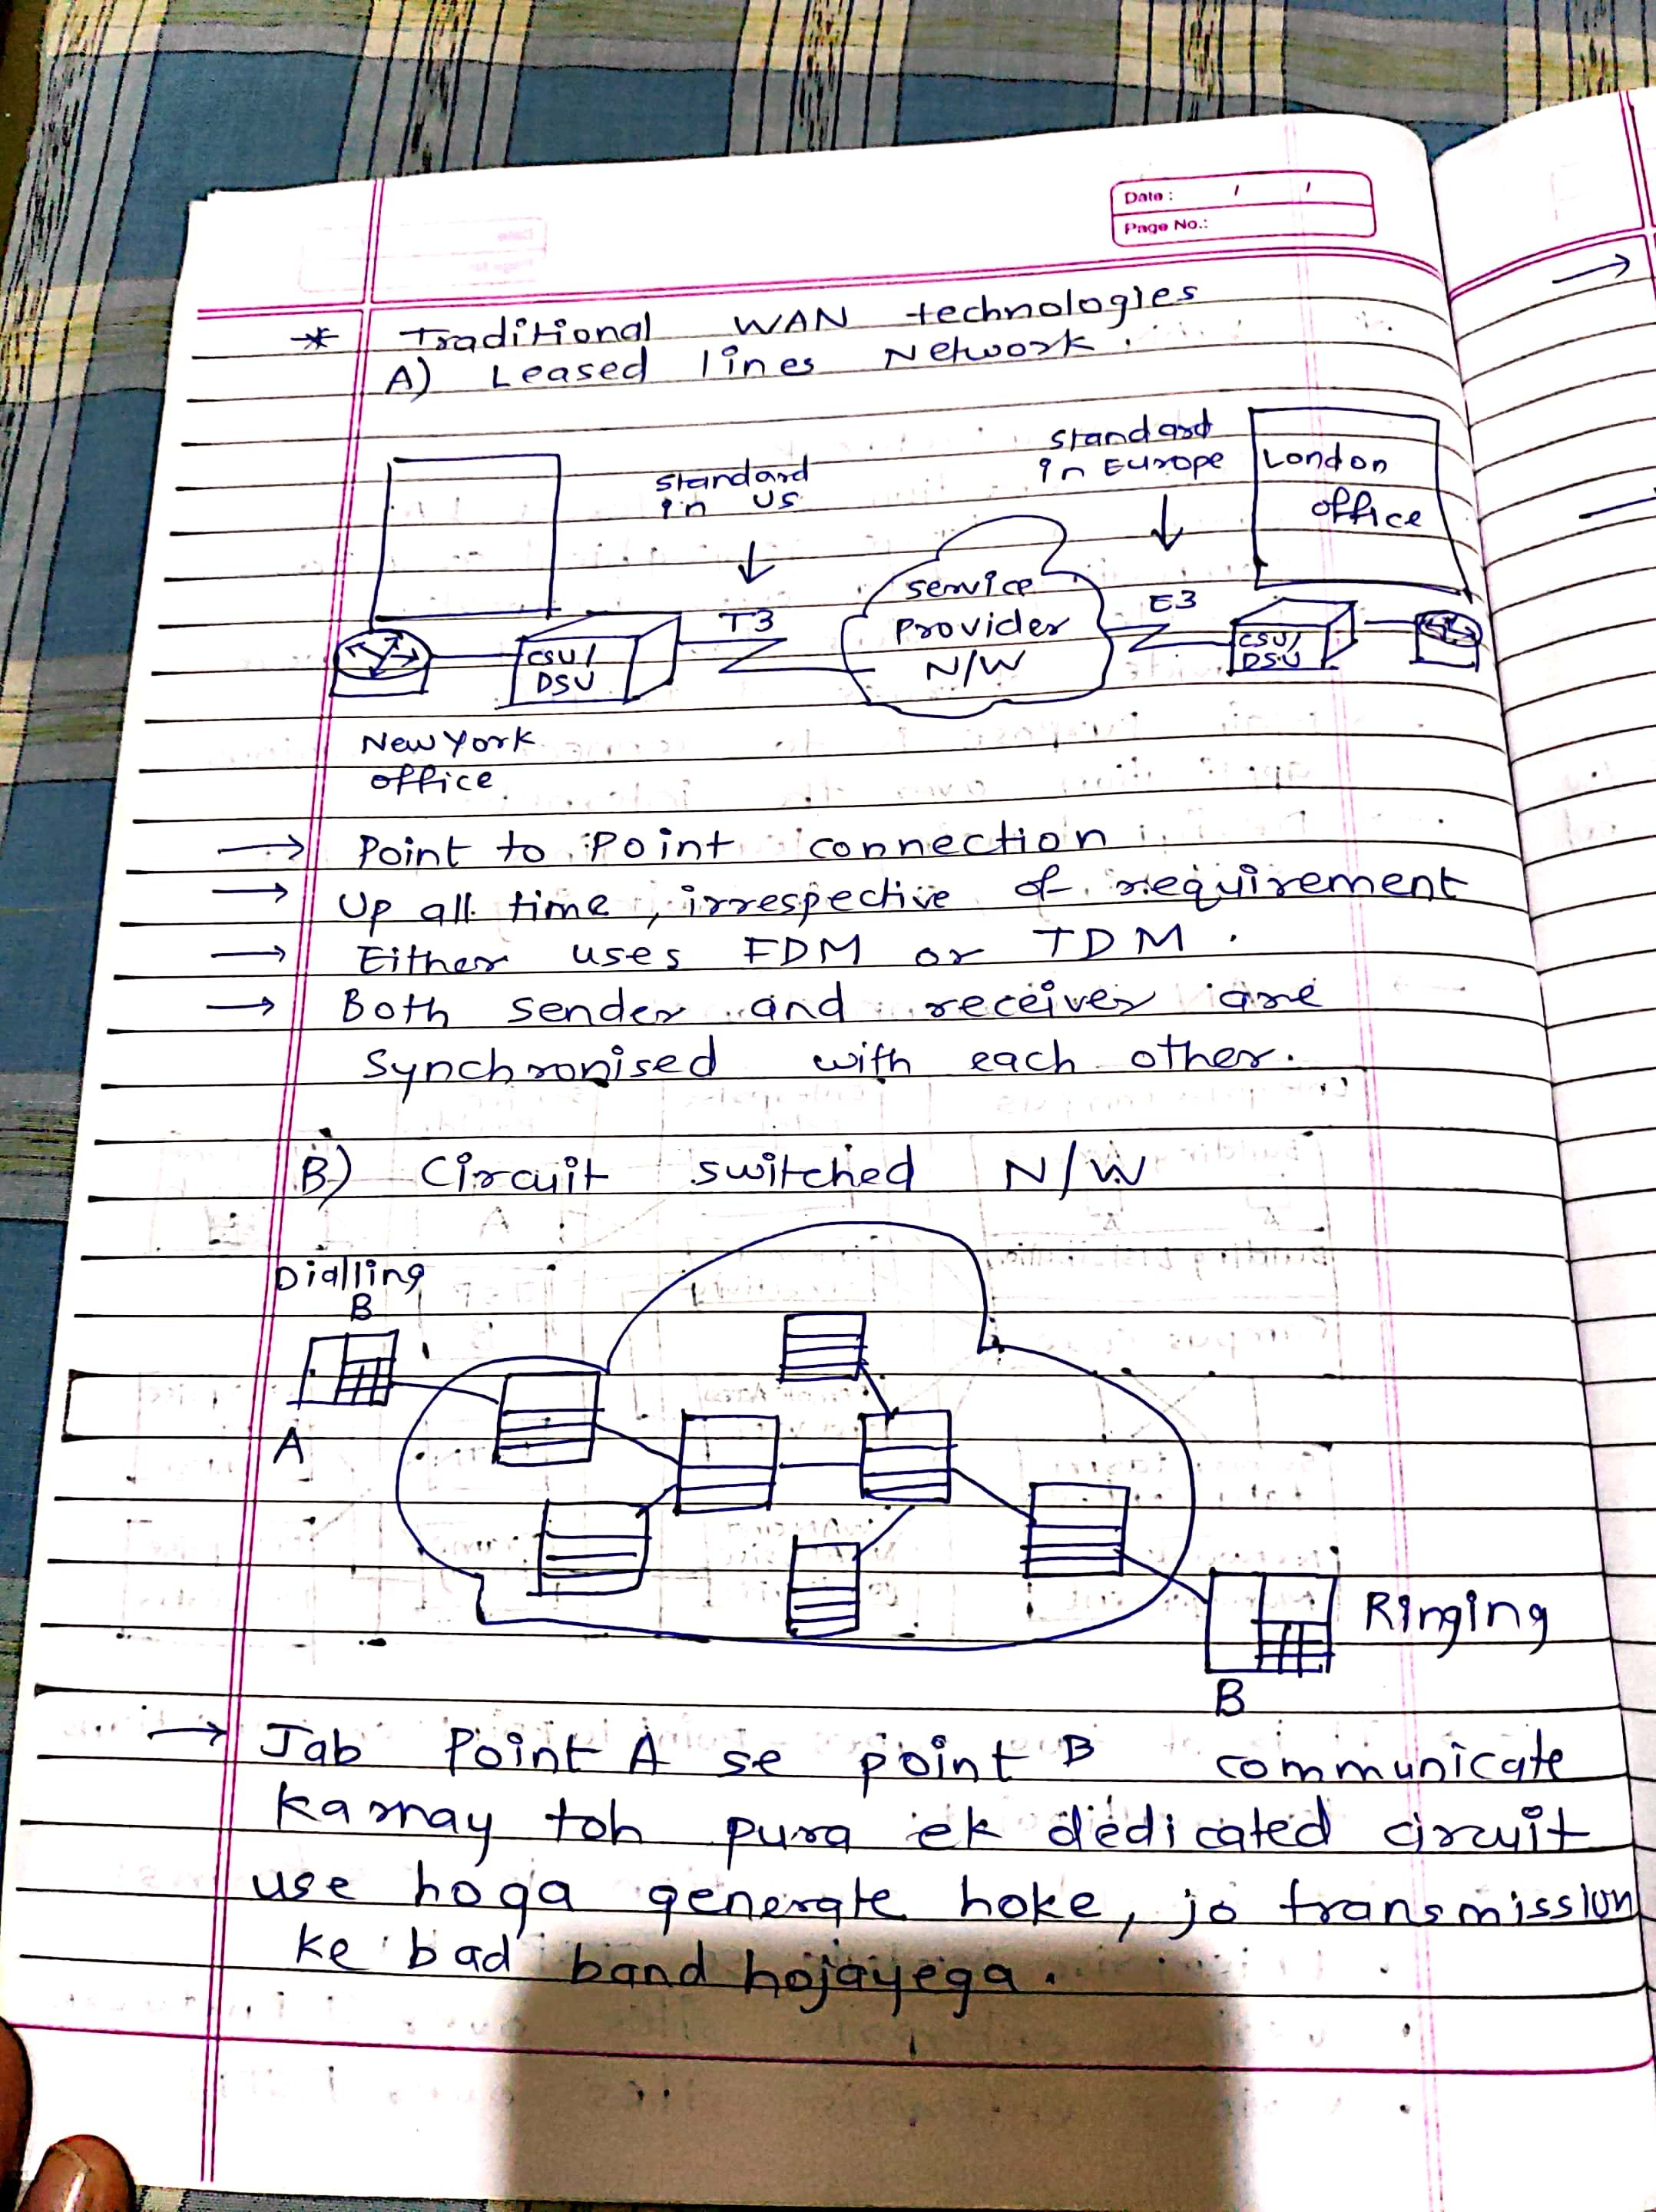 Date : / /
Page No.:
* Traditional WAN technologies
A) Leased lines Network.
Standard
in US
Standard
in Europe
London
office
T3
Service
Provider
N/W
E3
CSU/
DSU
CSU/
DSU
New York
office
→ Point to Point connection
→ Up all time, irrespective of requirement
→ Either uses FDM or TDM.
→ Both sender and receiver are
Synchronised with each other.
B) Circuit switched N/W
Dialling
B
A
Ringing
B
→ Jab Point A se point B communicate
karnay toh pura ek dedicated circuit
use hoga generate hoke, jo transmission
ke bad band hojayega.